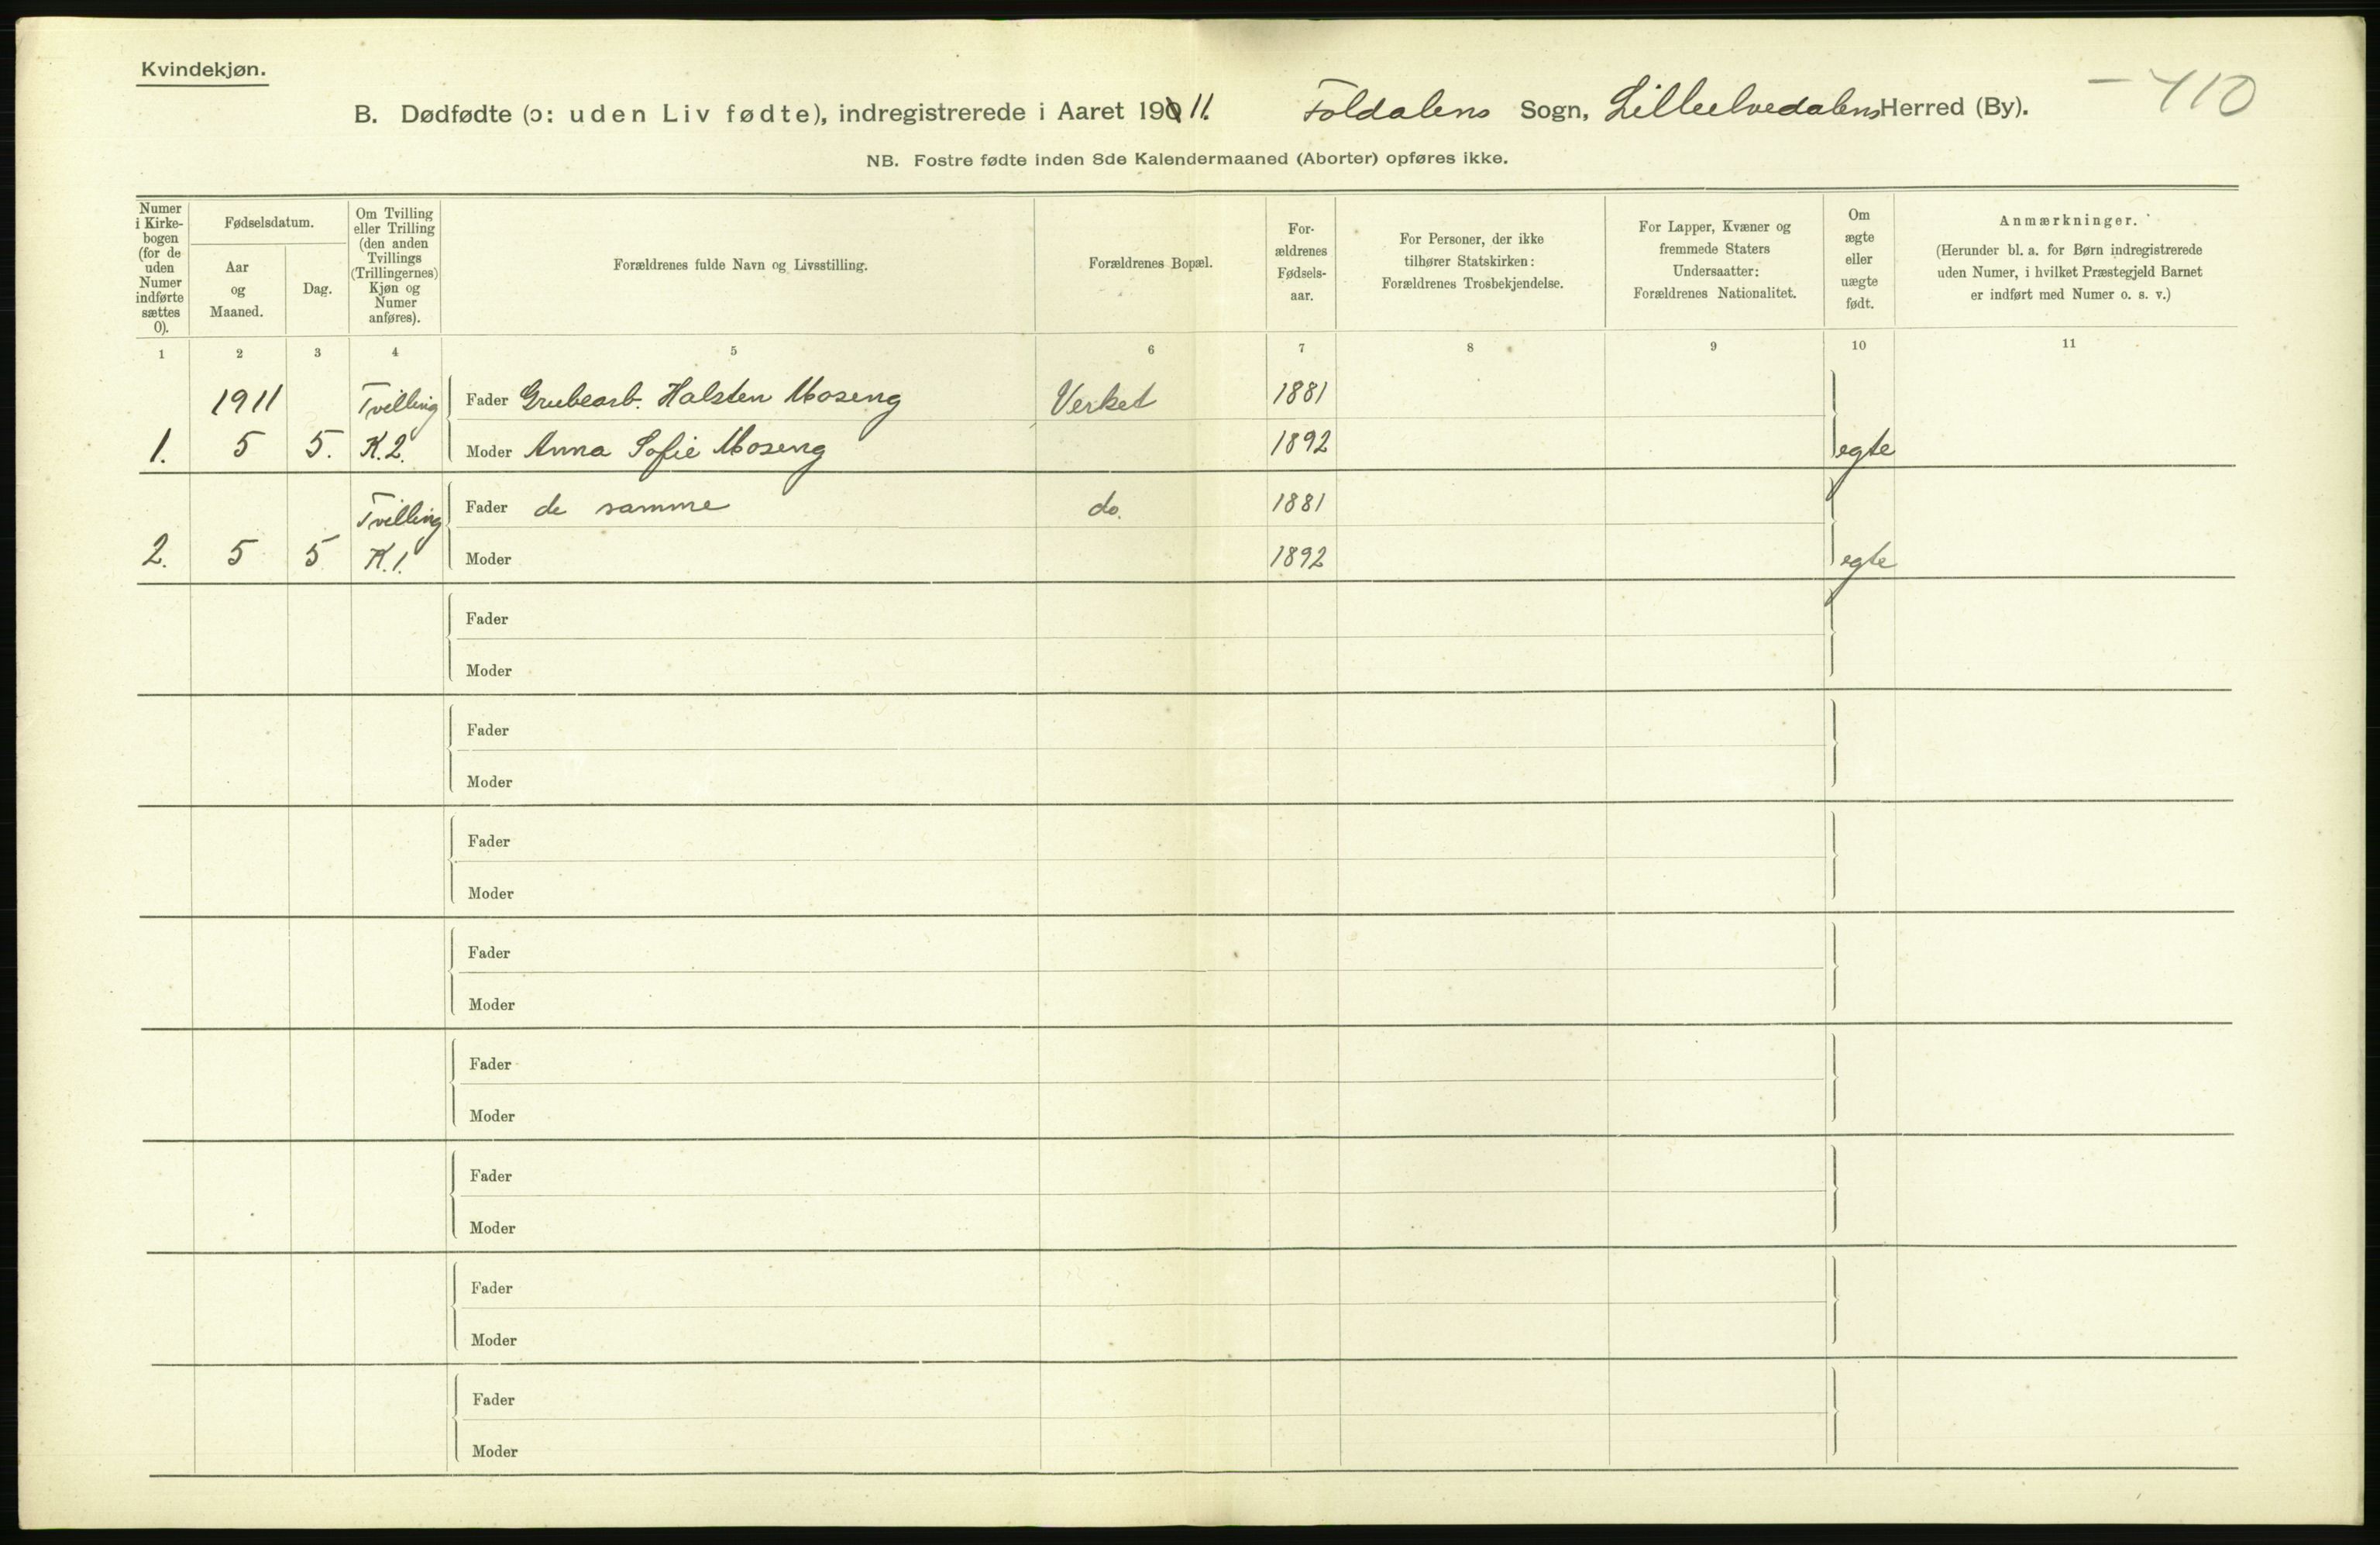 Kvindekjøn.
B. Dødfødte (ɔ: uden Liv fødte), indregistrerede i Aaret 1911. Foldalens Sogn, Lilleelvedalens Herred (By).
410
NB. Fostre fødte inden 8de Kalendermaaned (Aborter) opføres ikke.
Numer
i Kirke-
bogen
(for de
uden
Numer
indførte
sættes
0).
Fødselsdatum.
Aar
og
Maaned.
Dag.
Om Tvilling
eller Trilling
(den anden
Tvillings
(Trillingernes)
Kjøn og
Numer
anføres).
Forældrenes fulde Navn og Livsstilling.
Forældrenes Bopæl.
For-
ældrenes
Fødsels-
aar.
For Personer, der ikke
tilhører Statskirken:
Forældrenes Trosbekjendelse.
For Lapper, Kvæner og
fremmede Staters
Undersaatter:
Forældrenes Nationalitet.
Om
ægte
eller
uægte
født.
Anmærkninger.
(Herunder bl. a. for Børn indregistrerede
uden Numer, i hvilket Præstegjeld Barnet
er indført med Numer o. s. v.)
1 2 3 4 5 6 7 8 9 10 11
1911 Tvilling Fader Grubearb. Halsten Moseng Verket 1881
1. 5 5. K.2. Moder Anna Sofie Moseng 1892 egte
Tvilling Fader de samme do. 1881
2. 5 5 K.1. Moder 1892 egte
Fader
Moder
Fader
Moder
Fader
Moder
Fader
Moder
Fader
Moder
Fader
Moder
Fader
Moder
Fader
Moder